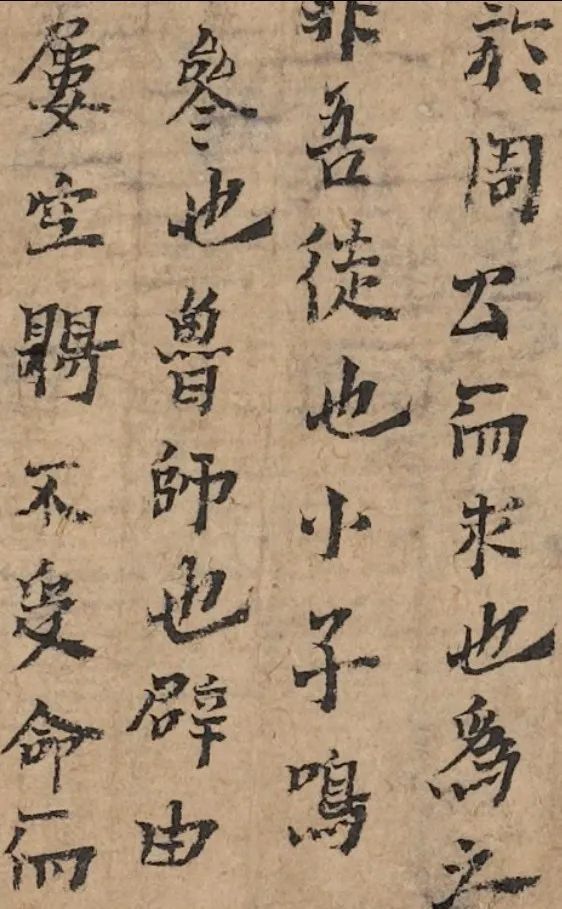 於周公而求也為之
非吾徒也小子鳴
參也魯師也辟由
屢空賜不受命而